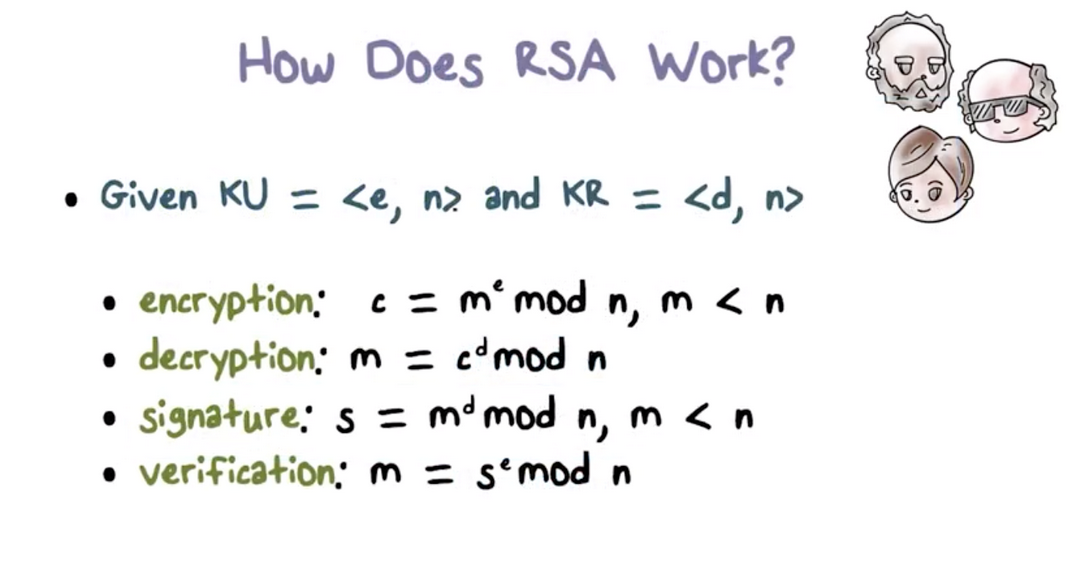 How Does RSA Work?
• Given KU = <e, n> and KR = <d, n>
• encryption: c = mᵉ mod n, m < n
• decryption: m = cᵈ mod n
• signature: s = mᵈ mod n, m < n
• verification: m = sᵉ mod n